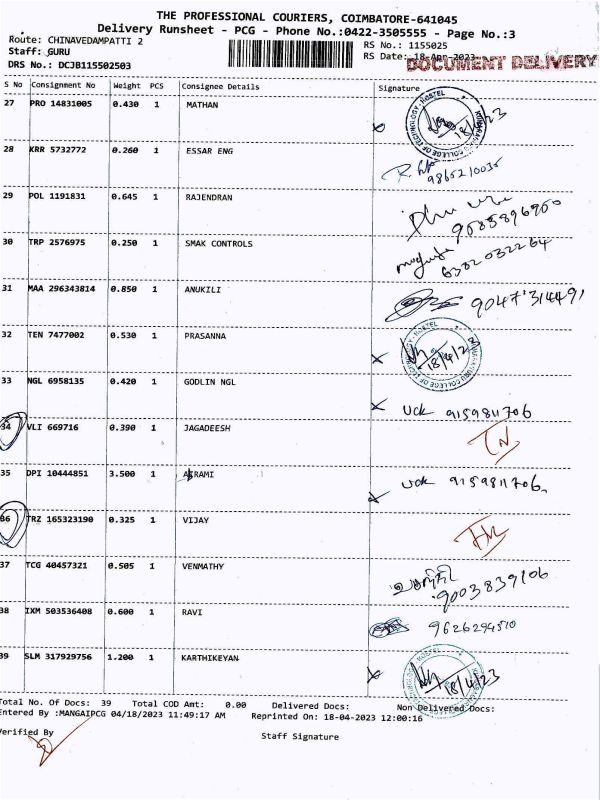 THE PROFESSIONAL COURIERS, COIMBATORE-641045
Delivery Runsheet - PCG - Phone No.:0422-3505555 - Page No.:3
Route: CHINAVEDAMPATTI 2
RS No.: 1155025
Staff: GURU
RS Date: 18-Apr-2023
DRS No.: DCJB115502503
DOCUMENT DELIVERY
S No Consignment No Weight PCS Consignee Details Signature
27 PRO 14831005 0.430 1 MATHAN
28 KRR 5732772 0.260 1 ESSAR ENG
9865210035
29 POL 1191831 0.645 1 RAJENDRAN
9585896950
30 TRP 2576975 0.250 1 SMAK CONTROLS
6382032264
31 MAA 296343814 0.850 1 ANUKILI
9047314491
32 TEN 7477002 0.530 1 PRASANNA
18/4/23
33 NGL 6958135 0.420 1 GODLIN NGL
9159811706
34 VLI 669716 0.390 1 JAGADEESH
35 DPI 10444851 3.500 1
9159811706
36 TRZ 165323190 0.325 1 VIJAY
37 TCG 40457321 0.505 1 VENMATHY
9003839106
38 IXM 503536408 0.600 1 RAVI
9626294510
39 SLM 317929756 1.200 1 KARTHIKEYAN
18/4/23
Total No. Of Docs: 39 Total COD Amt: 0.00 Delivered Docs: Non Delivered Docs:
Entered By :MANGAIPCG 04/18/2023 11:49:17 AM Reprinted On: 18-04-2023 12:00:16
Verified By
Staff Signature